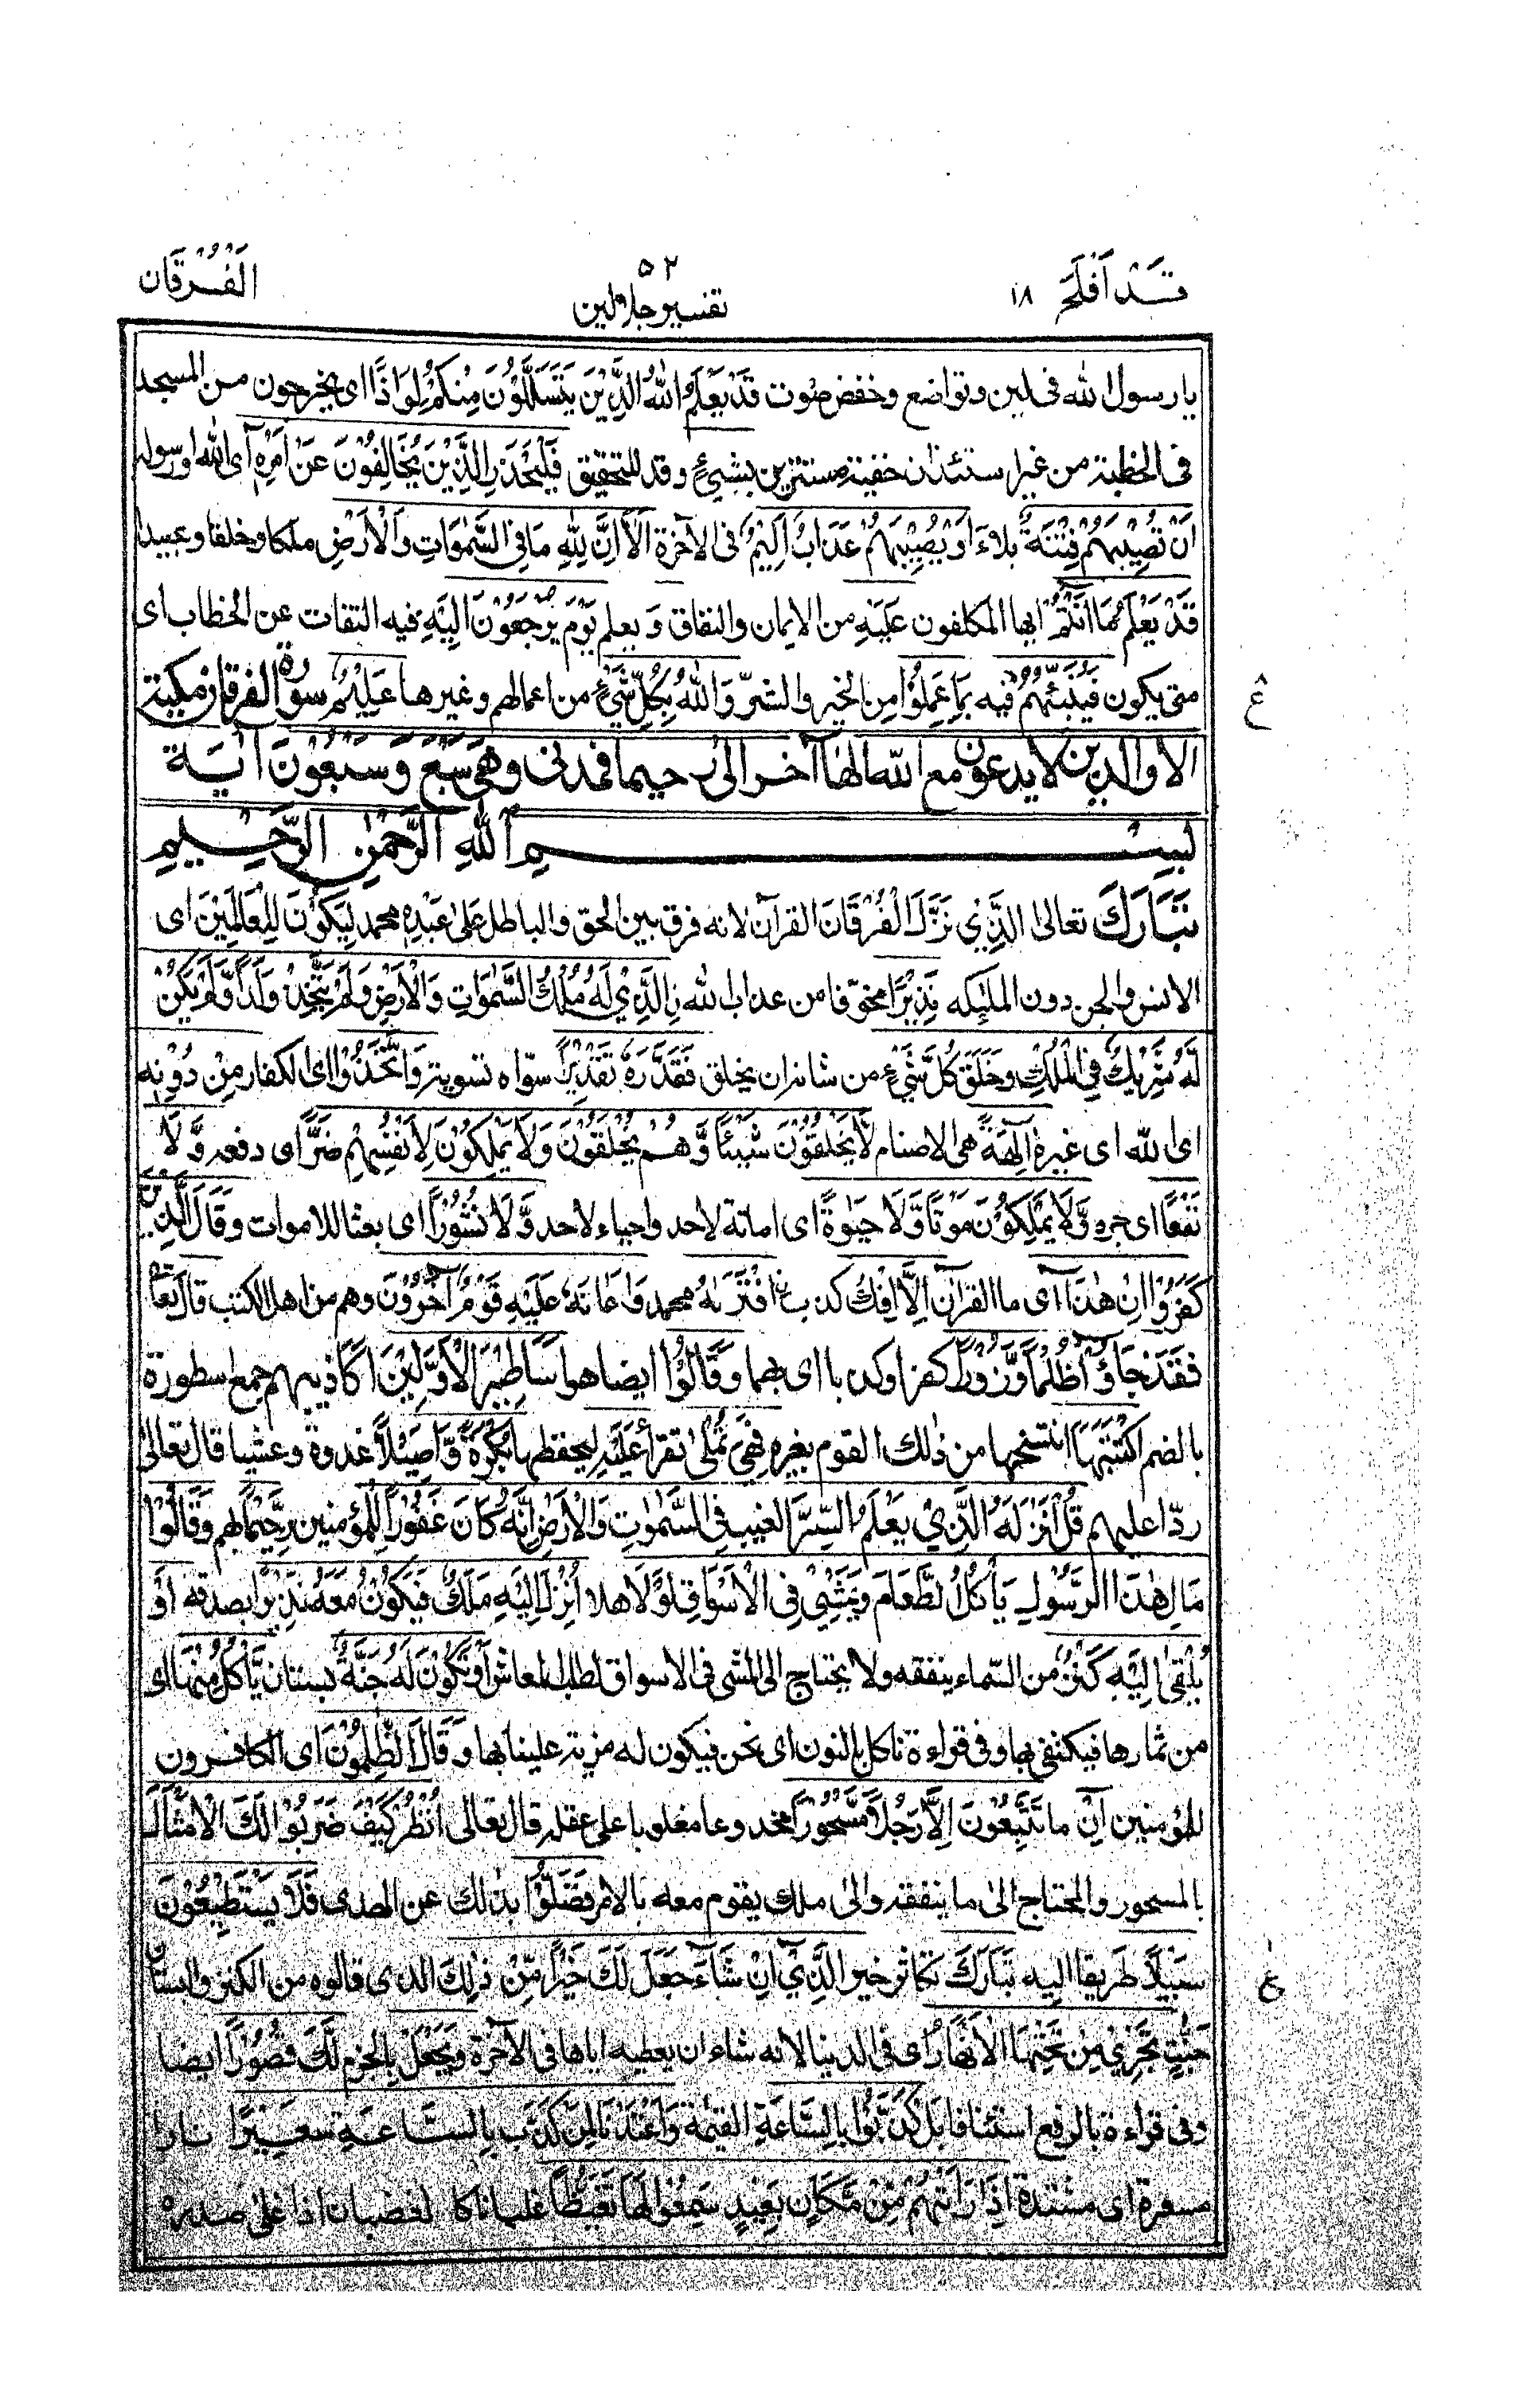 قَدْ اَفْلَحَ ١٨
٥٢
تفسير جلالين
الْفُرْقَان
يا رسول الله فى لين وتواضع وخفض صوت قَدْ يَعْلَمُ اللّٰهُ الَّذِيْنَ يَتَسَلَّلُوْنَ مِنْكُمْ لِوَاذًا اى يخرجون من المسجد
فى الخطبة من غير استئذان خفية مستترين بشيئ وقد للتحقيق فَلْيَحْذَرِ الَّذِيْنَ يُخَالِفُوْنَ عَنْ اَمْرِهٖ اى الله او رسوله
اَنْ تُصِيْبَهُمْ فِتْنَةٌ بلاء اَوْ يُصِيْبَهُمْ عَذَابٌ اَلِيْمٌ فى الآخرة اَلَآ اِنَّ لِلّٰهِ مَا فِى السَّمٰوَاتِ وَالْاَرْضِ ملكا وخلقا وعبيدا
قَدْ يَعْلَمُ مَا اَنْتُمْ ايها المكلفون عَلَيْهِ من الايمان والنفاق وَ يعلم يَوْمَ يُرْجَعُوْنَ اِلَيْهِ فيه التفات عن الخطاب اى
متى يكون فَيُنَبِّئُهُمْ فيه بِمَا عَمِلُوْا من الخير والشرّ وَاللّٰهُ بِكُلِّ شَيْءٍ من اعمالهم وغيرها عَلِيْمٌ سورة الفرقان مكية
الا والذين لا يدعون مع الله الٰها آخر الى رحيما فمدنى وهى سَبْعٌ وَّسَبْعُوْنَ اٰيَة
بِسْـــمِ اللّٰهِ الرَّحْمٰنِ الرَّحِيْمِ
تَبَارَكَ تعالى الَّذِيْ نَزَّلَ الْفُرْقَانَ القرآن لانه فرق بين الحق والباطل عَلٰى عَبْدِهٖ محمد لِيَكُوْنَ لِلْعَالَمِيْنَ اى
الانس والجن دون الملئكه نَذِيْرًا مخوّفا من عذاب الله نِ الَّذِيْ لَهٗ مُلْكُ السَّمٰوَاتِ وَالْاَرْضِ وَلَمْ يَتَّخِذْ وَلَدًا وَّلَمْ يَكُنْ
لَّهٗ شَرِيْكٌ فِى الْمُلْكِ وَخَلَقَ كُلَّ شَيْءٍ من شانه ان يخلق فَقَدَّرَهٗ تَقْدِيْرًا سوّاه تسوية وَاتَّخَذُوْا اى الكفار مِنْ دُوْنِهٖ
اى الله اى غيره اٰلِهَةً هى الاصنام لَّا يَخْلُقُوْنَ شَيْئًا وَّهُمْ يُخْلَقُوْنَ وَلَا يَمْلِكُوْنَ لِاَنْفُسِهِمْ ضَرًّا اى دفعه وَّلَا
نَفْعًا اى جره وَّلَا يَمْلِكُوْنَ مَوْتًا وَّلَا حَيٰوةً اى اماتة لاحد واحياء لاحد وَّلَا نُشُوْرًا اى بعثا للاموات وَقَالَ الَّذِيْنَ
كَفَرُوْا اِنْ هٰذَا اى ما القرآن اِلَّا اِفْكٌ كذب نِ افْتَرٰىهُ محمد وَاَعَانَهٗ عَلَيْهِ قَوْمٌ اٰخَرُوْنَ وهم من اهل الكتب قال تعا
فَقَدْ جَاؤُ ظُلْمًا وَّزُوْرًا كفرا وكذبا اى بهما وَقَالُوْا ايضا هو اَسَاطِيْرُ الْاَوَّلِيْنَ اكاذيبهم جمع اسطورة
بالضم اكْتَتَبَهَا انتسخها من ذٰلك القوم بغيره فَهِيَ تُمْلٰى تقرأ عَلَيْهِ ليحفظها بُكْرَةً وَّاَصِيْلًا غدوة وعشيا قال تعالى
ردّا عليهم قُلْ اَنْزَلَهُ الَّذِيْ يَعْلَمُ السِّرَّ الغيب فِى السَّمٰوٰتِ وَالْاَرْضِ اِنَّهٗ كَانَ غَفُوْرًا للمؤمنين رَّحِيْمًا بهم وَقَالُوْا
مَالِ هٰذَا الرَّسُوْلِ يَأْكُلُ الطَّعَامَ وَيَمْشِيْ فِى الْاَسْوَاقِ لَوْلَا هلا اُنْزِلَ اِلَيْهِ مَلَكٌ فَيَكُوْنُ مَعَهٗ نَذِيْرًا يصدقه اَوْ
يُلْقٰى اِلَيْهِ كَنْزٌ من السّماء ينفقه ولا يحتاج الى المشى فى الاسواق لطلب المعاش اَوْ تَكُوْنُ لَهٗ جَنَّةٌ بستان يَّأْكُلُ مِنْهَا اى
من ثمارها فيكتفى بها وفى قراءة نأكل بالنون اى نحن فيكون له مزية علينا بها وَقَالَ الظّٰلِمُوْنَ اى الكافرون
للمؤمنين اِنْ ما تَتَّبِعُوْنَ اِلَّا رَجُلًا مَّسْحُوْرًا مخدوعا مغلوبا على عقله قال تعالى اُنْظُرْ كَيْفَ ضَرَبُوْا لَكَ الْاَمْثَالَ
بالمسحور والمحتاج الى ما ينفقه والى ملك يقوم معه بالامر فَضَلُّوْا بذٰلك عن الهدى فَلَا يَسْتَطِيْعُوْنَ
سَبِيْلًا طريقا اليه تَبَارَكَ تكاثر خير الَّذِيْ اِنْ شَآءَ جَعَلَ لَكَ خَيْرًا مِّنْ ذٰلِكَ الذى قالوه من الكنز والبستان
جَنّٰتٍ تَجْرِيْ مِنْ تَحْتِهَا الْاَنْهَارُ اى فى الدنيا لانه شاء ان يعطيه اياها فى الآخرة وَيَجْعَلْ بالجزم لَّكَ قُصُوْرًا ايضا
وفى قراءة بالرفع استئنافا بَلْ كَذَّبُوْا بِالسَّاعَةِ القيٰمة وَاَعْتَدْنَا لِمَنْ كَذَّبَ بِالسَّاعَةِ سَعِيْرًا نارا
مسعرة اى مشتدة اِذَا رَاَتْهُمْ مِّنْ مَّكَانٍ بَعِيْدٍ سَمِعُوْا لَهَا تَغَيُّظًا غليانا كالغضبان اذا غلى صدره
ع
ع